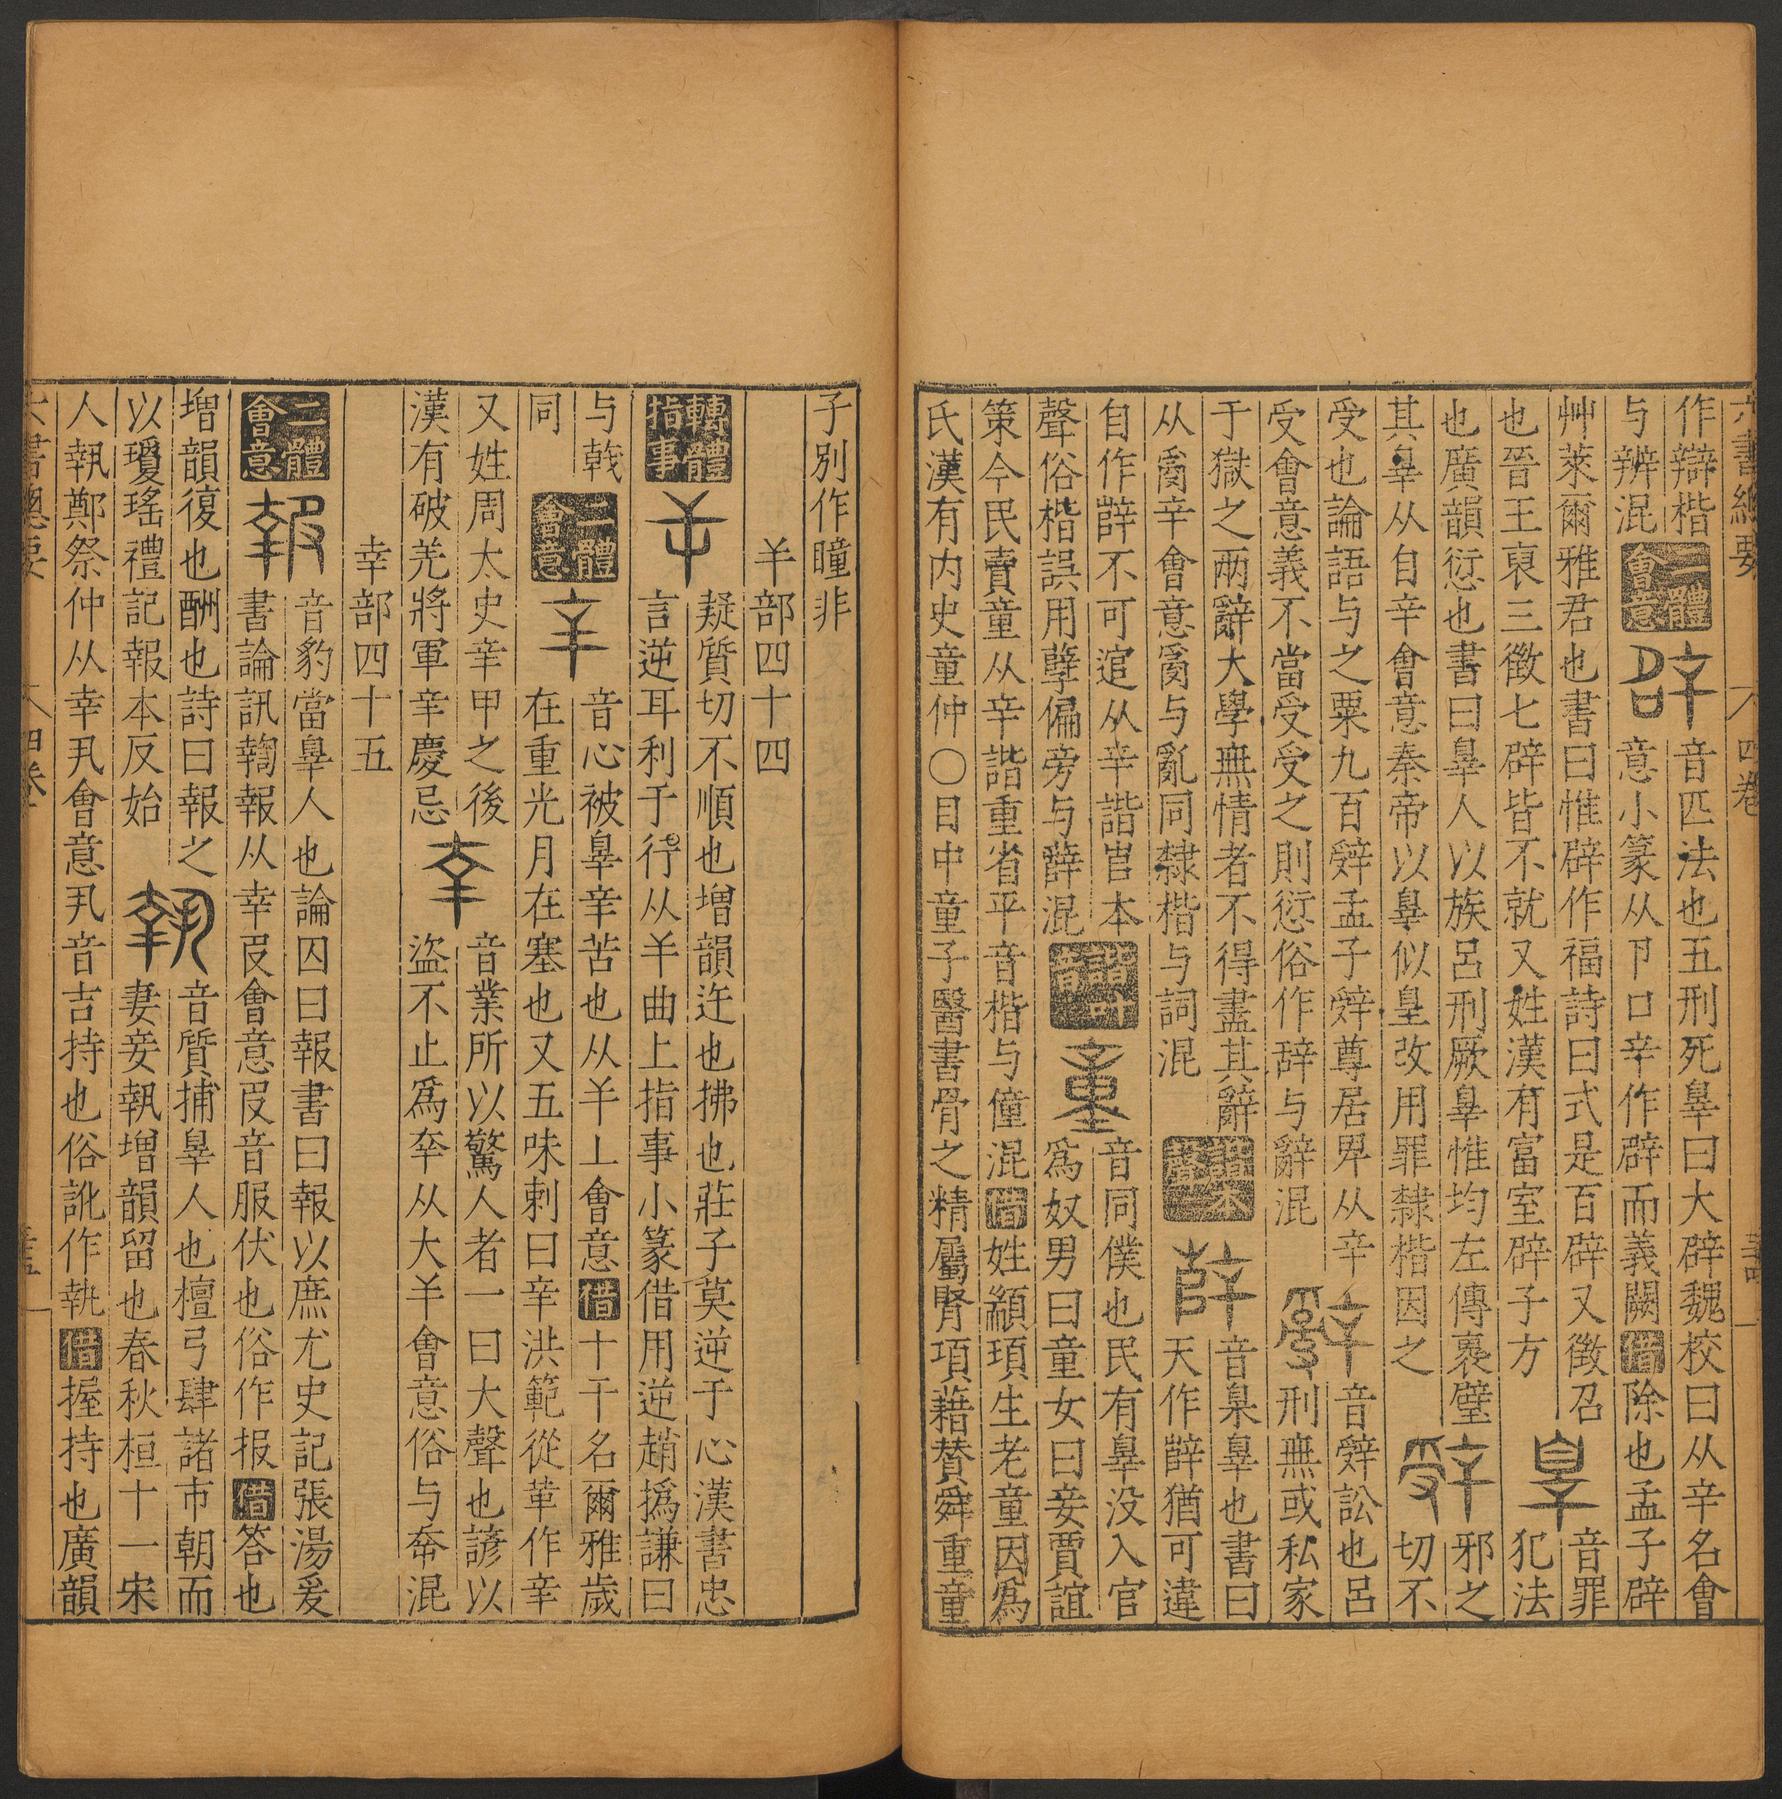 六書總要 八 四卷
作辯楷音匹法也五刑死辠曰大辟魏校曰从辛名會
与辨混二體會意意小篆从卩口辛作辟而義闕借除也孟子辟
艸萊爾雅君也書曰惟辟作福詩曰式是百辟又徴召音罪
也晉王裒三徴七辟皆不就又姓漢有富室辟子方犯法
也廣韻愆也書曰辠人以族呂刑厥辠惟均左傳裹璧邪之
其辠从自辛會意秦帝以辠似皇改用罪隸楷因之切不
受也論語与之粟九百辤孟子辤尊居卑从辛音辤訟也呂
受會意義不當受受之則愆俗作辞与辭混刑無或私家
于獄之兩辭大學無情者不得盡其辭音辠也書曰
从𤔔辛會意𤔔与亂同隸楷与詞混天作薛猶可違
自作薛不可逭从辛諧𡴎本音同僕也民有辠没入官
聲俗楷誤用孽偏旁与薛混爲奴男曰童女曰妾賈誼
策今民賣童从辛諧重省平音楷与僮混借姓顓頊生老童因爲
氏漢有内史童仲〇目中童子醫書骨之精屬腎項藉賛舜重童
子別作瞳非
𢆉部四十四
轉體指事疑質切不順也增韻迕也拂也莊子莫逆于心漢書忠
言逆耳利于行从𢆉曲上指事小篆借用逆趙撝謙曰
与戟二體會意音心被辠辛苦也从𢆉丄會意借十干名爾雅歲
同辛在重光月在塞也又五味剌曰辛洪範從革作辛
又姓周太史辛甲之後音業所以驚人者一曰大聲也諺以
漢有破羌將軍辛慶忌盜不止爲㚔从大𢆉會意俗与幸混
㚔部四十五
二體會意報音豹當辠人也論囚曰報書曰報以庶尤史記張湯爰
書論訊鞫報从㚔𠬝會意𠬝音服伏也俗作报借答也
增韻復也酬也詩曰報之音質捕辠人也檀弓肆諸市朝而
以瓊瑤禮記報本反始妻妾執增韻留也春秋桓十一宋
人執鄭祭仲从㚔丮會意丮音吉持也俗訛作執借握持也廣韻
六書總要 八 四卷